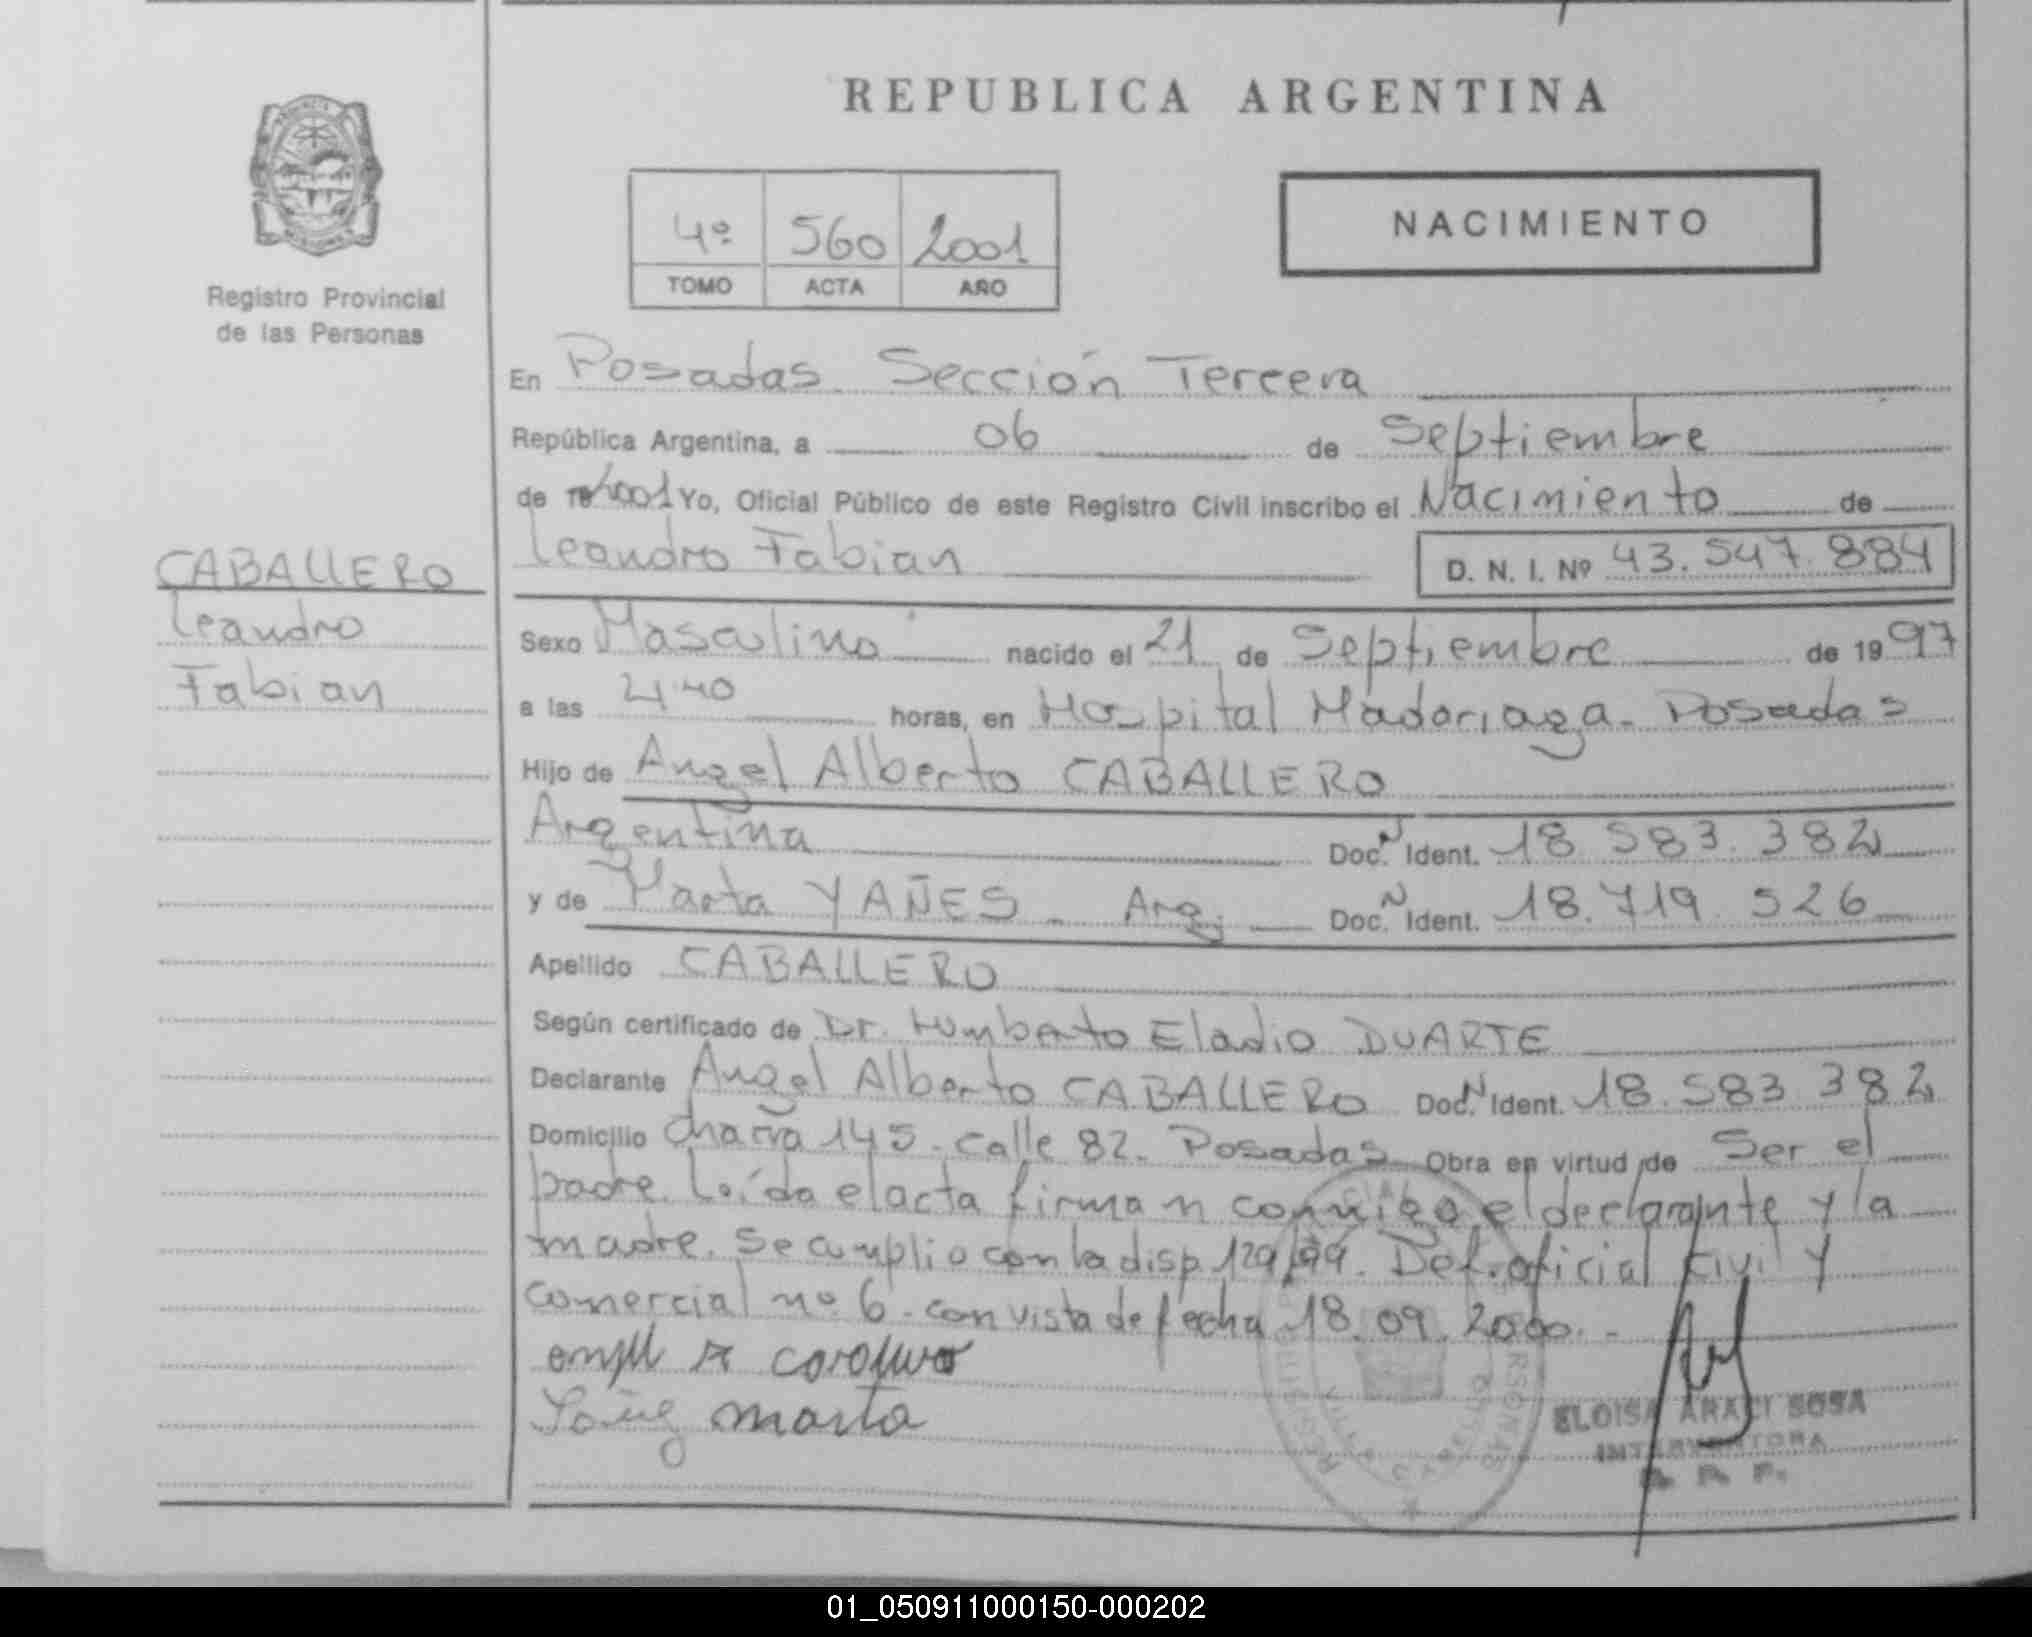 REPUBLICA ARGENTINA
4º 560 2001
TOMO ACTA AÑO
NACIMIENTO
Registro Provincial
de las Personas
CABALLERO
Leandro
Fabian
En Posadas. Sección Tercera
República Argentina, a 06 de Septiembre
de 2001 Yo, Oficial Público de este Registro Civil inscribo el Nacimiento de
Leandro Fabian D. N. I. Nº 43.547.884
Sexo Masculino nacido el 21 de Septiembre de 1997
a las 21.40 horas, en Hospital Madariaga. Posadas
Hijo de Angel Alberto CABALLERO
Argentina Doc. N Ident. 18.583.382
y de Marta YAÑES - Arg. Doc. N Ident. 18.719.526
Apellido CABALLERO
Según certificado de Dr. Humberto Eladio DUARTE
Declarante Angel Alberto CABALLERO Doc. N Ident. 18.583.382
Domicilio chacra 145. calle 82. Posadas Obra en virtud de Ser el
padre. Leída el acta firman conmigo el declarante y la
madre. Se cumplio con la disp. 129/99. Def. oficial Civil y
Comercial nº 6. con vista de fecha 18.09.2000.-
marta
ELOISA ARACI SOSA
INTERVENTORA
R. P. P.
01_050911000150-000202